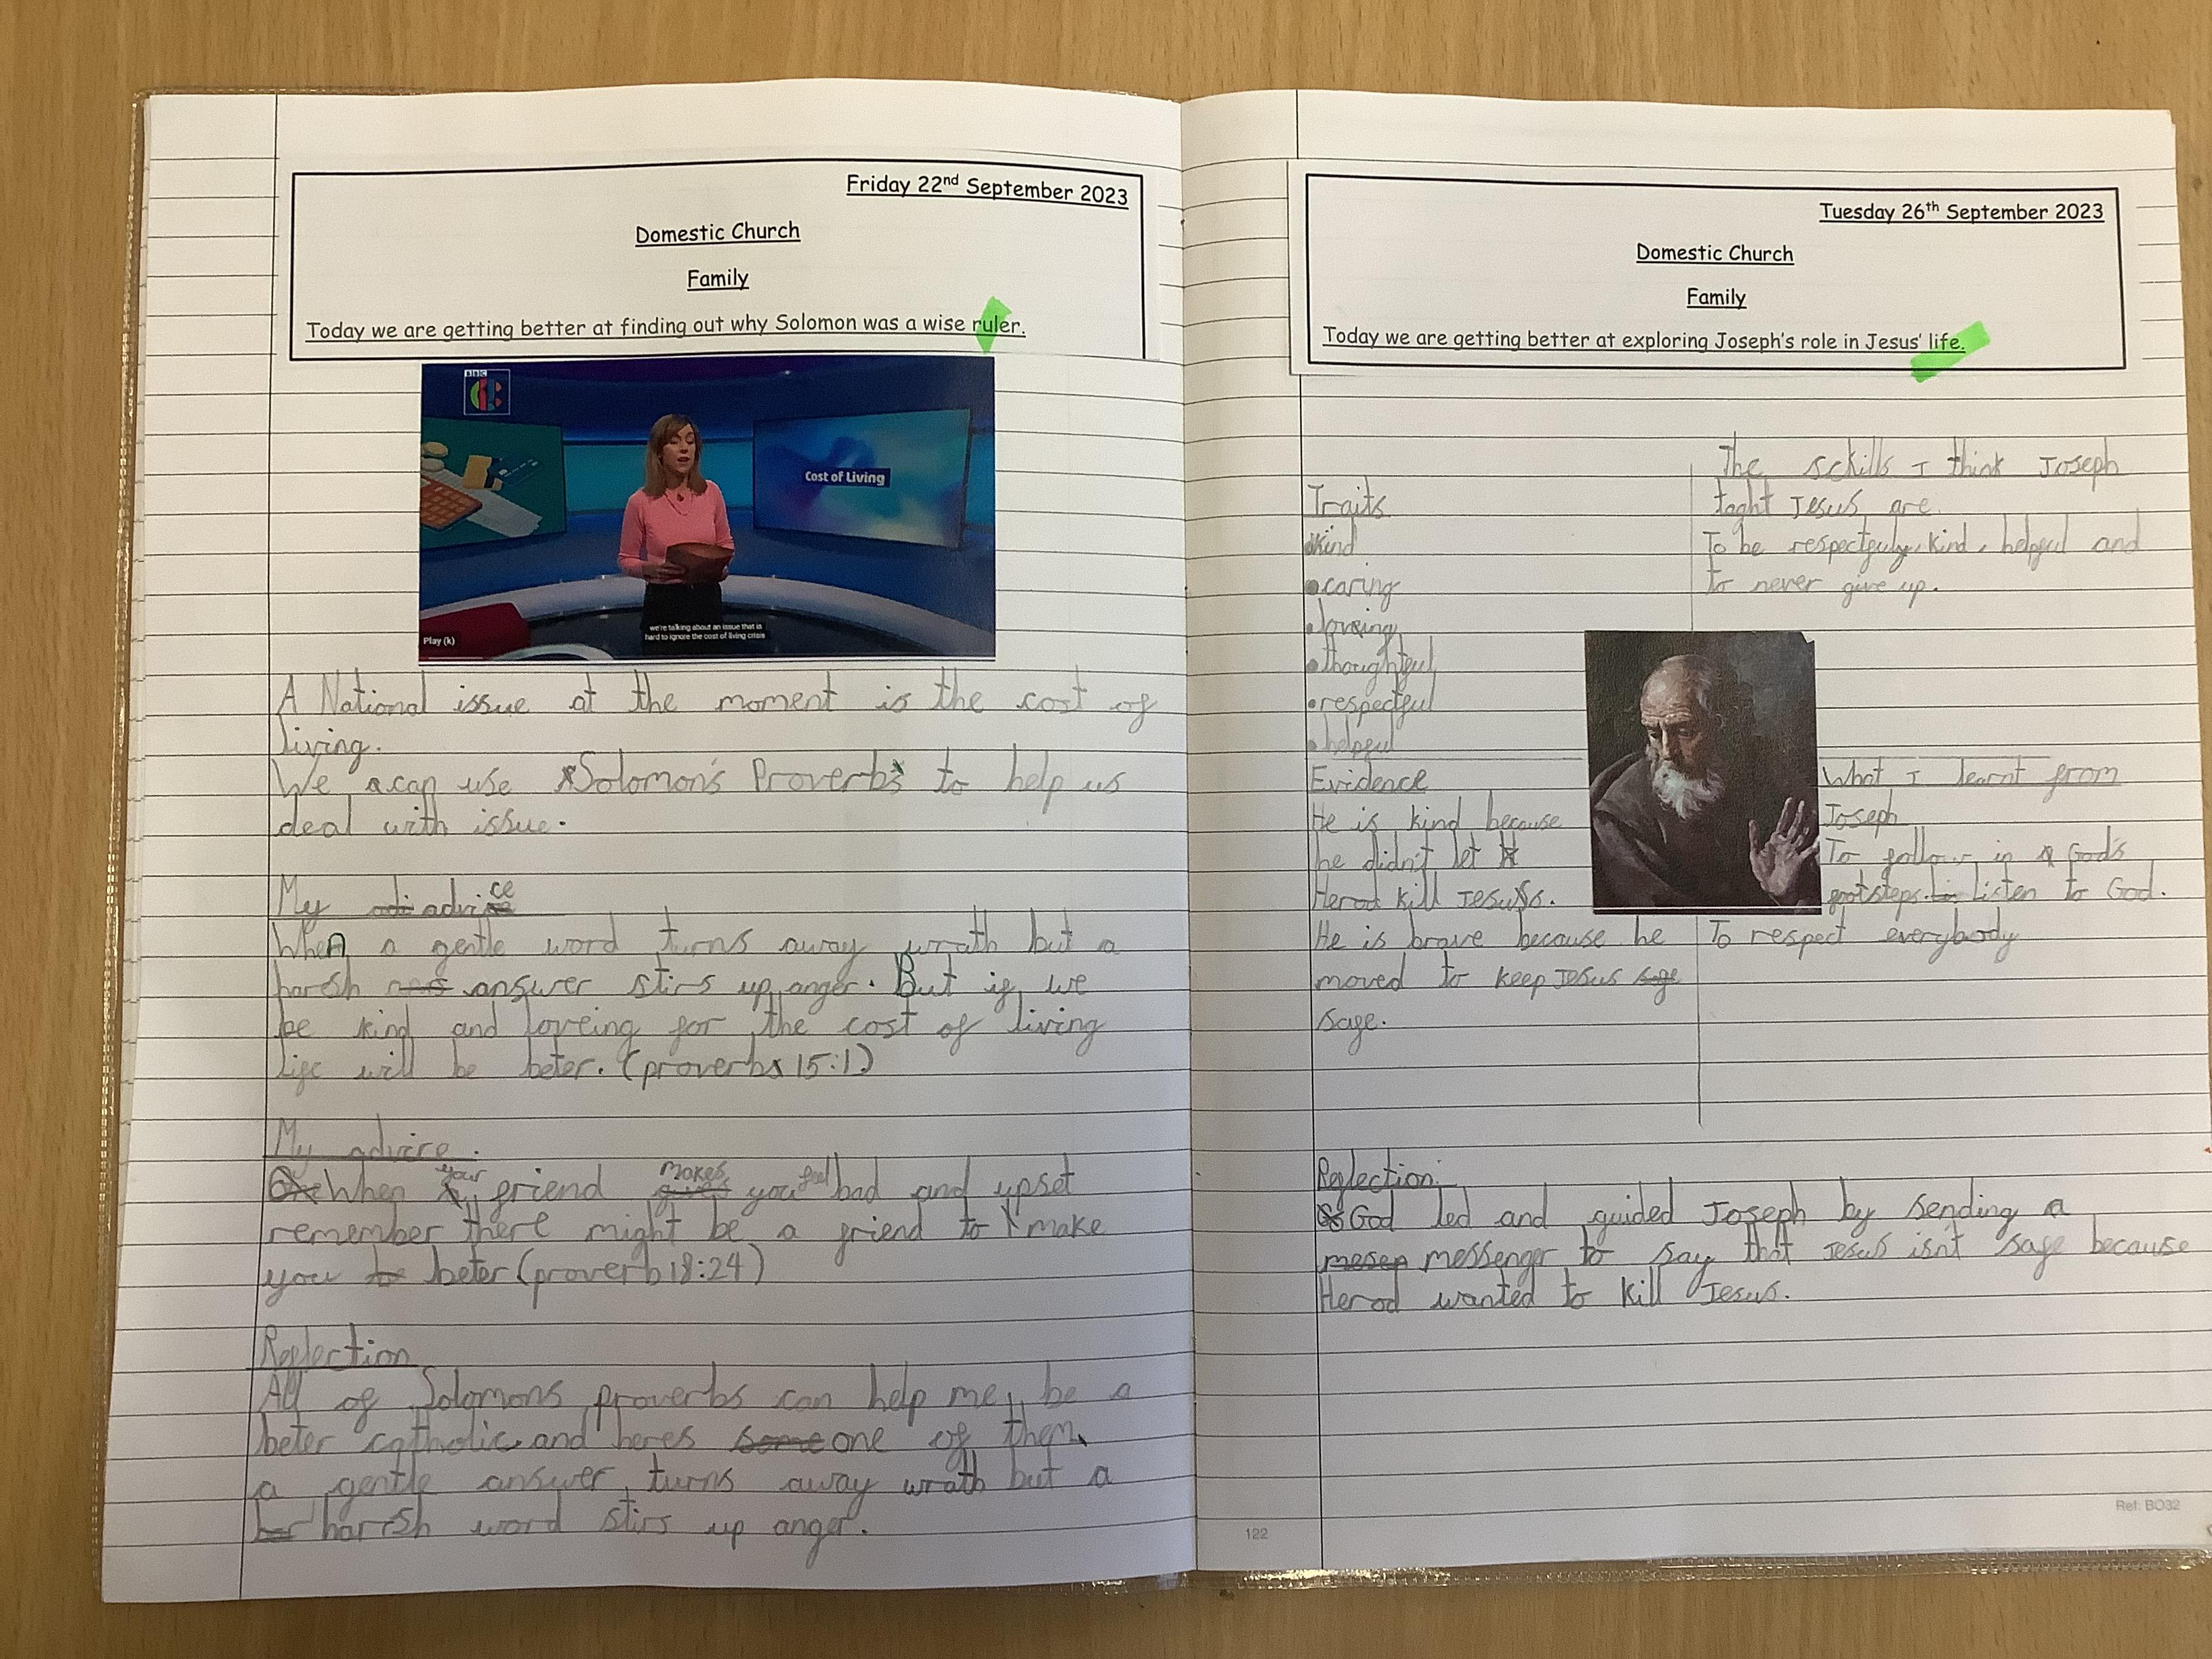 Friday 22nd September 2023
Domestic Church
Family
Today we are getting better at finding out why Solomon was a wise ruler.
BBC
Cost of Living
we're talking about an issue that is
hard to ignore the cost of living crisis
Play (k)
A National issue at the moment is the cost of
living.
We can use Solomon's Proverbs to help us
deal with issue.
My advice
When a gentle word turns away wrath but a
harsh answer stirs up anger. But if we
be kind and loveing for the cost of living
life will be beter. (proverbs 15:1)
My advice.
When your friend makes you feel bad and upset
remember there might be a friend to make
you beter (proverb 18:24)
Reflection
All of Solomons proverbs can help me be a
beter catholic and heres one of them.
a gentle answer turns away wrath but a
harsh word stirs up anger.
Tuesday 26th September 2023
Domestic Church
Family
Today we are getting better at exploring Joseph's role in Jesus' life.
Traits
•kind
•caring
•loveing
•thoughtful
•respectful
•helpful
The sckills I think Joseph
taght Jesus are
To be respectfuly, kind, helpful and
to never give up.
Evidence
He is kind because
he didn't let
Herod kill Jesus.
He is brave because he
moved to keep Jesus
safe.
What I learnt from
Joseph
To follow in God's
footsteps. Listen to God.
To respect everybody
Reflection
God led and guided Joseph by sending a
messenger to say that Jesus isn't safe because
Herod wanted to kill Jesus.
122
Ref: BO32